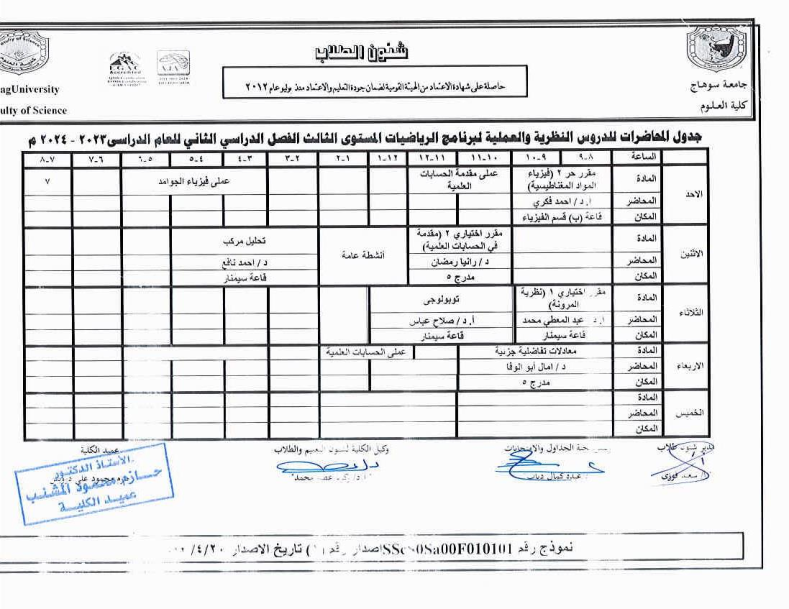 شئون الطلاب
حاصلة على شهادة الاعتماد من الهيئة القومية لضمان جودة التعليم والاعتماد منذ يوليو عام ٢٠١٢
جامعة سوهاج
كلية العلوم
agUniversity
ulty of Science
جدول المحاضرات للدروس النظرية والعملية لبرنامج الرياضيات المستوى الثالث الفصل الدراسي الثاني للعام الدراسى ٢٠٢٣ - ٢٠٢٤ م
الساعة ٨-٩ ٩-١٠ ١٠-١١ ١١-١٢ ١٢-١ ١-٢ ٢-٣ ٣-٤ ٤-٥ ٥-٦ ٦-٧ ٧-٨
الاحد
المادة
مقرر حر ٢ (فيزياء المواد المغناطيسية)
عملى مقدمة الحسابات العلمية
عملى فيزياء الجوامد
٧
المحاضر
ا.د / احمد فكري
المكان
قاعة (ب) قسم الفيزياء
الاثنين
المادة
مقرر اختياري ٢ (مقدمة في الحسابات العلمية)
أنشطة عامة
تحليل مركب
المحاضر
د / رانيا رمضان
د / احمد نافع
المكان
مدرج ٥
قاعة سيمنار
الثلاثاء
المادة
مقرر اختياري ١ (نظرية المرونة)
توبولوجى
المحاضر
ا.د عبد المعطي محمد
أ.د / صلاح عباس
المكان
قاعة سيمنار
قاعة سيمنار
الاربعاء
المادة
معادلات تفاضلية جزئية
عملى الحسابات العلمية
المحاضر
د / امال أبو الوفا
المكان
مدرج ٥
الخميس
المادة
المحاضر
المكان
مدير شئون طلاب
الجداول والامتحانات
وكيل الكلية لشئون التعليم والطلاب
عميد الكلية
سعد فوزى
عبده كمال دياب
الاستاذ الدكتور
عميد الكلية
نموذج رقم SScs0Sa00F010101 اصدار رقم (١) تاريخ الاصدار ٤/٢٠/